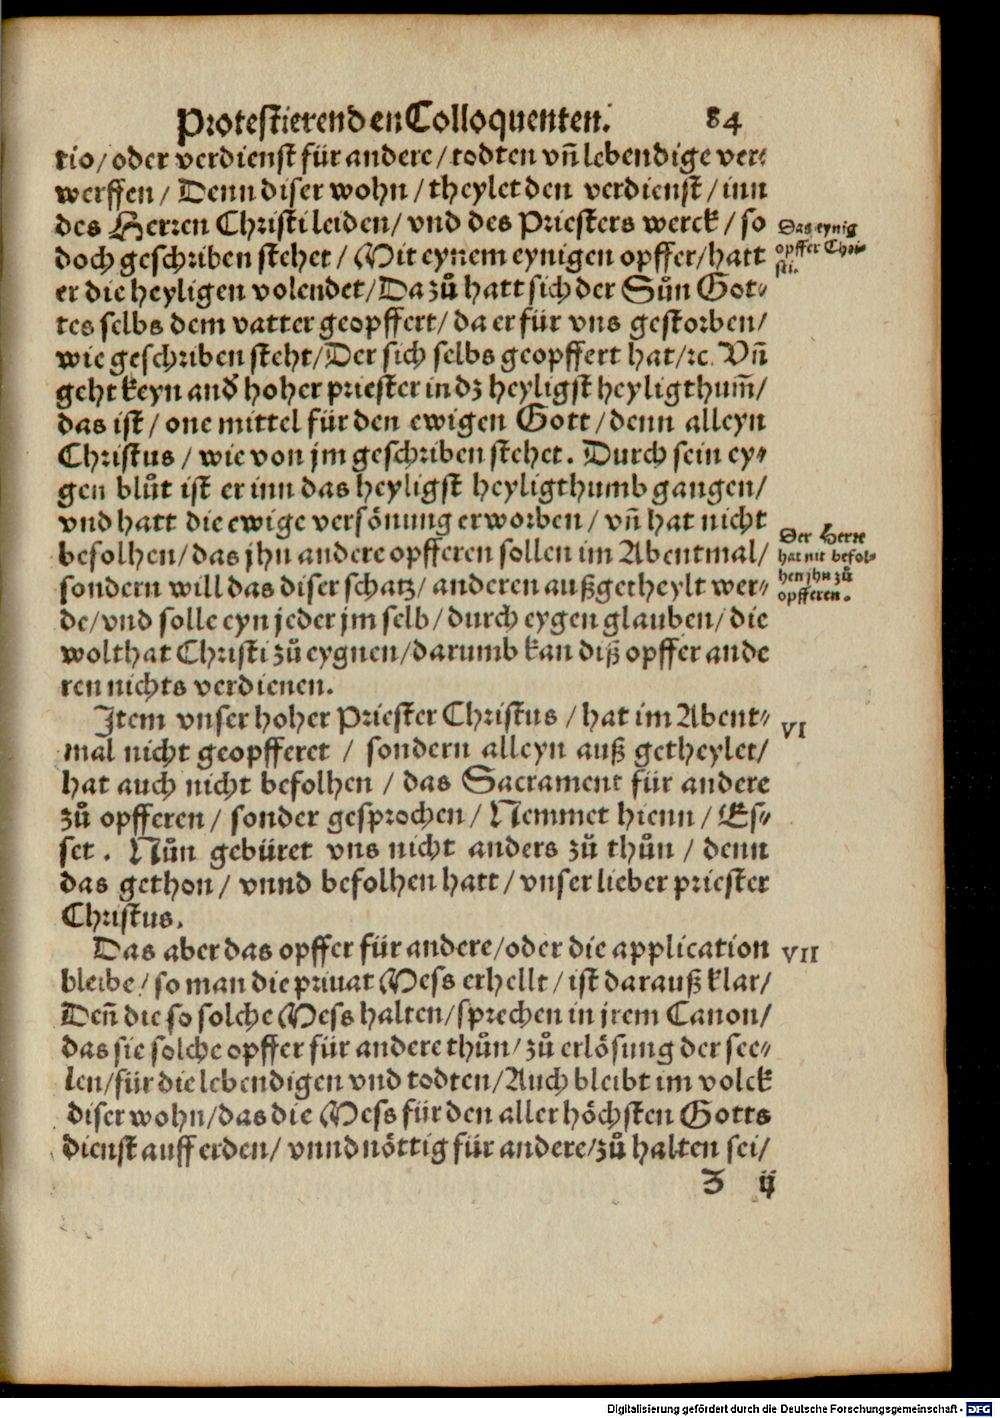 Protestierenden Colloquenten. 84
tio/ oder verdienst für andere/ todten vñ lebendige ver⸗
werffen/ Denn diser wohn/ theylet den verdienst/ inn
des Herren Christi leiden/ vnd des Priesters werck/ so
doch geschriben stehet/ Mit eynem eynigen opffer/ hatt
er die heyligen volendet/ Da zů hatt sich der Sůn Got⸗
tes selbs dem vatter geopffert/ da er für vns gestorben/
wie geschriben steht/ Der sich selbs geopffert hat/ ꝛc. Vñ
geht keyn and̕ hoher priester in dz heyligst heyligthum̃/
das ist/ one mittel für den ewigen Gott/ denn alleyn
Christus/ wie von jm geschriben stehet. Durch sein ey⸗
gen blůt ist er inn das heyligst heyligthumb gangen/
vnd hatt die ewige versönung erworben/ vñ hat nicht
befolhen/ das jhn andere opfferen sollen im Abentmal/
sondern will das diser schatz/ anderen außgetheylt wer⸗
de/ vnd solle eyn jeder jm selb/ durch eygen glauben/ die
wolthat Christi zů eygnen/ darumb kan diß opffer ande
ren nichts verdienen.
Das eynig
opffer Chri⸗
sti.
Der Herre
hat nit befol⸗
hen jhn zů
opfferen.
Item vnser hoher Priester Christus/ hat im Abent⸗
mal nicht geopfferet/ sondern alleyn auß getheylet/
hat auch nicht befolhen/ das Sacrament für andere
zů opfferen/ sonder gesprochen/ Nemmet hienn/ Es⸗
set. Nůn gebüret vns nicht anders zů thůn/ denn
das gethon/ vnnd befolhen hatt/ vnser lieber priester
Christus.
VI
Das aber das opffer für andere/ oder die application
bleibe/ so man die priuat Mess erhellt/ ist darauß klar/
Deñ die so solche Mess halten/ sprechen in jrem Canon/
das sie solche opffer für andere thůn/ zů erlösung der see⸗
len/ für die lebendigen vnd todten/ Auch bleibt im volck
diser wohn/ das die Mess für den aller höchsten Gotts
dienst auff erden/ vnnd nöttig für andere/ zů halten sei/
VII
Z ij
Digitalisierung gefördert durch die Deutsche Forschungsgemeinschaft - DFG